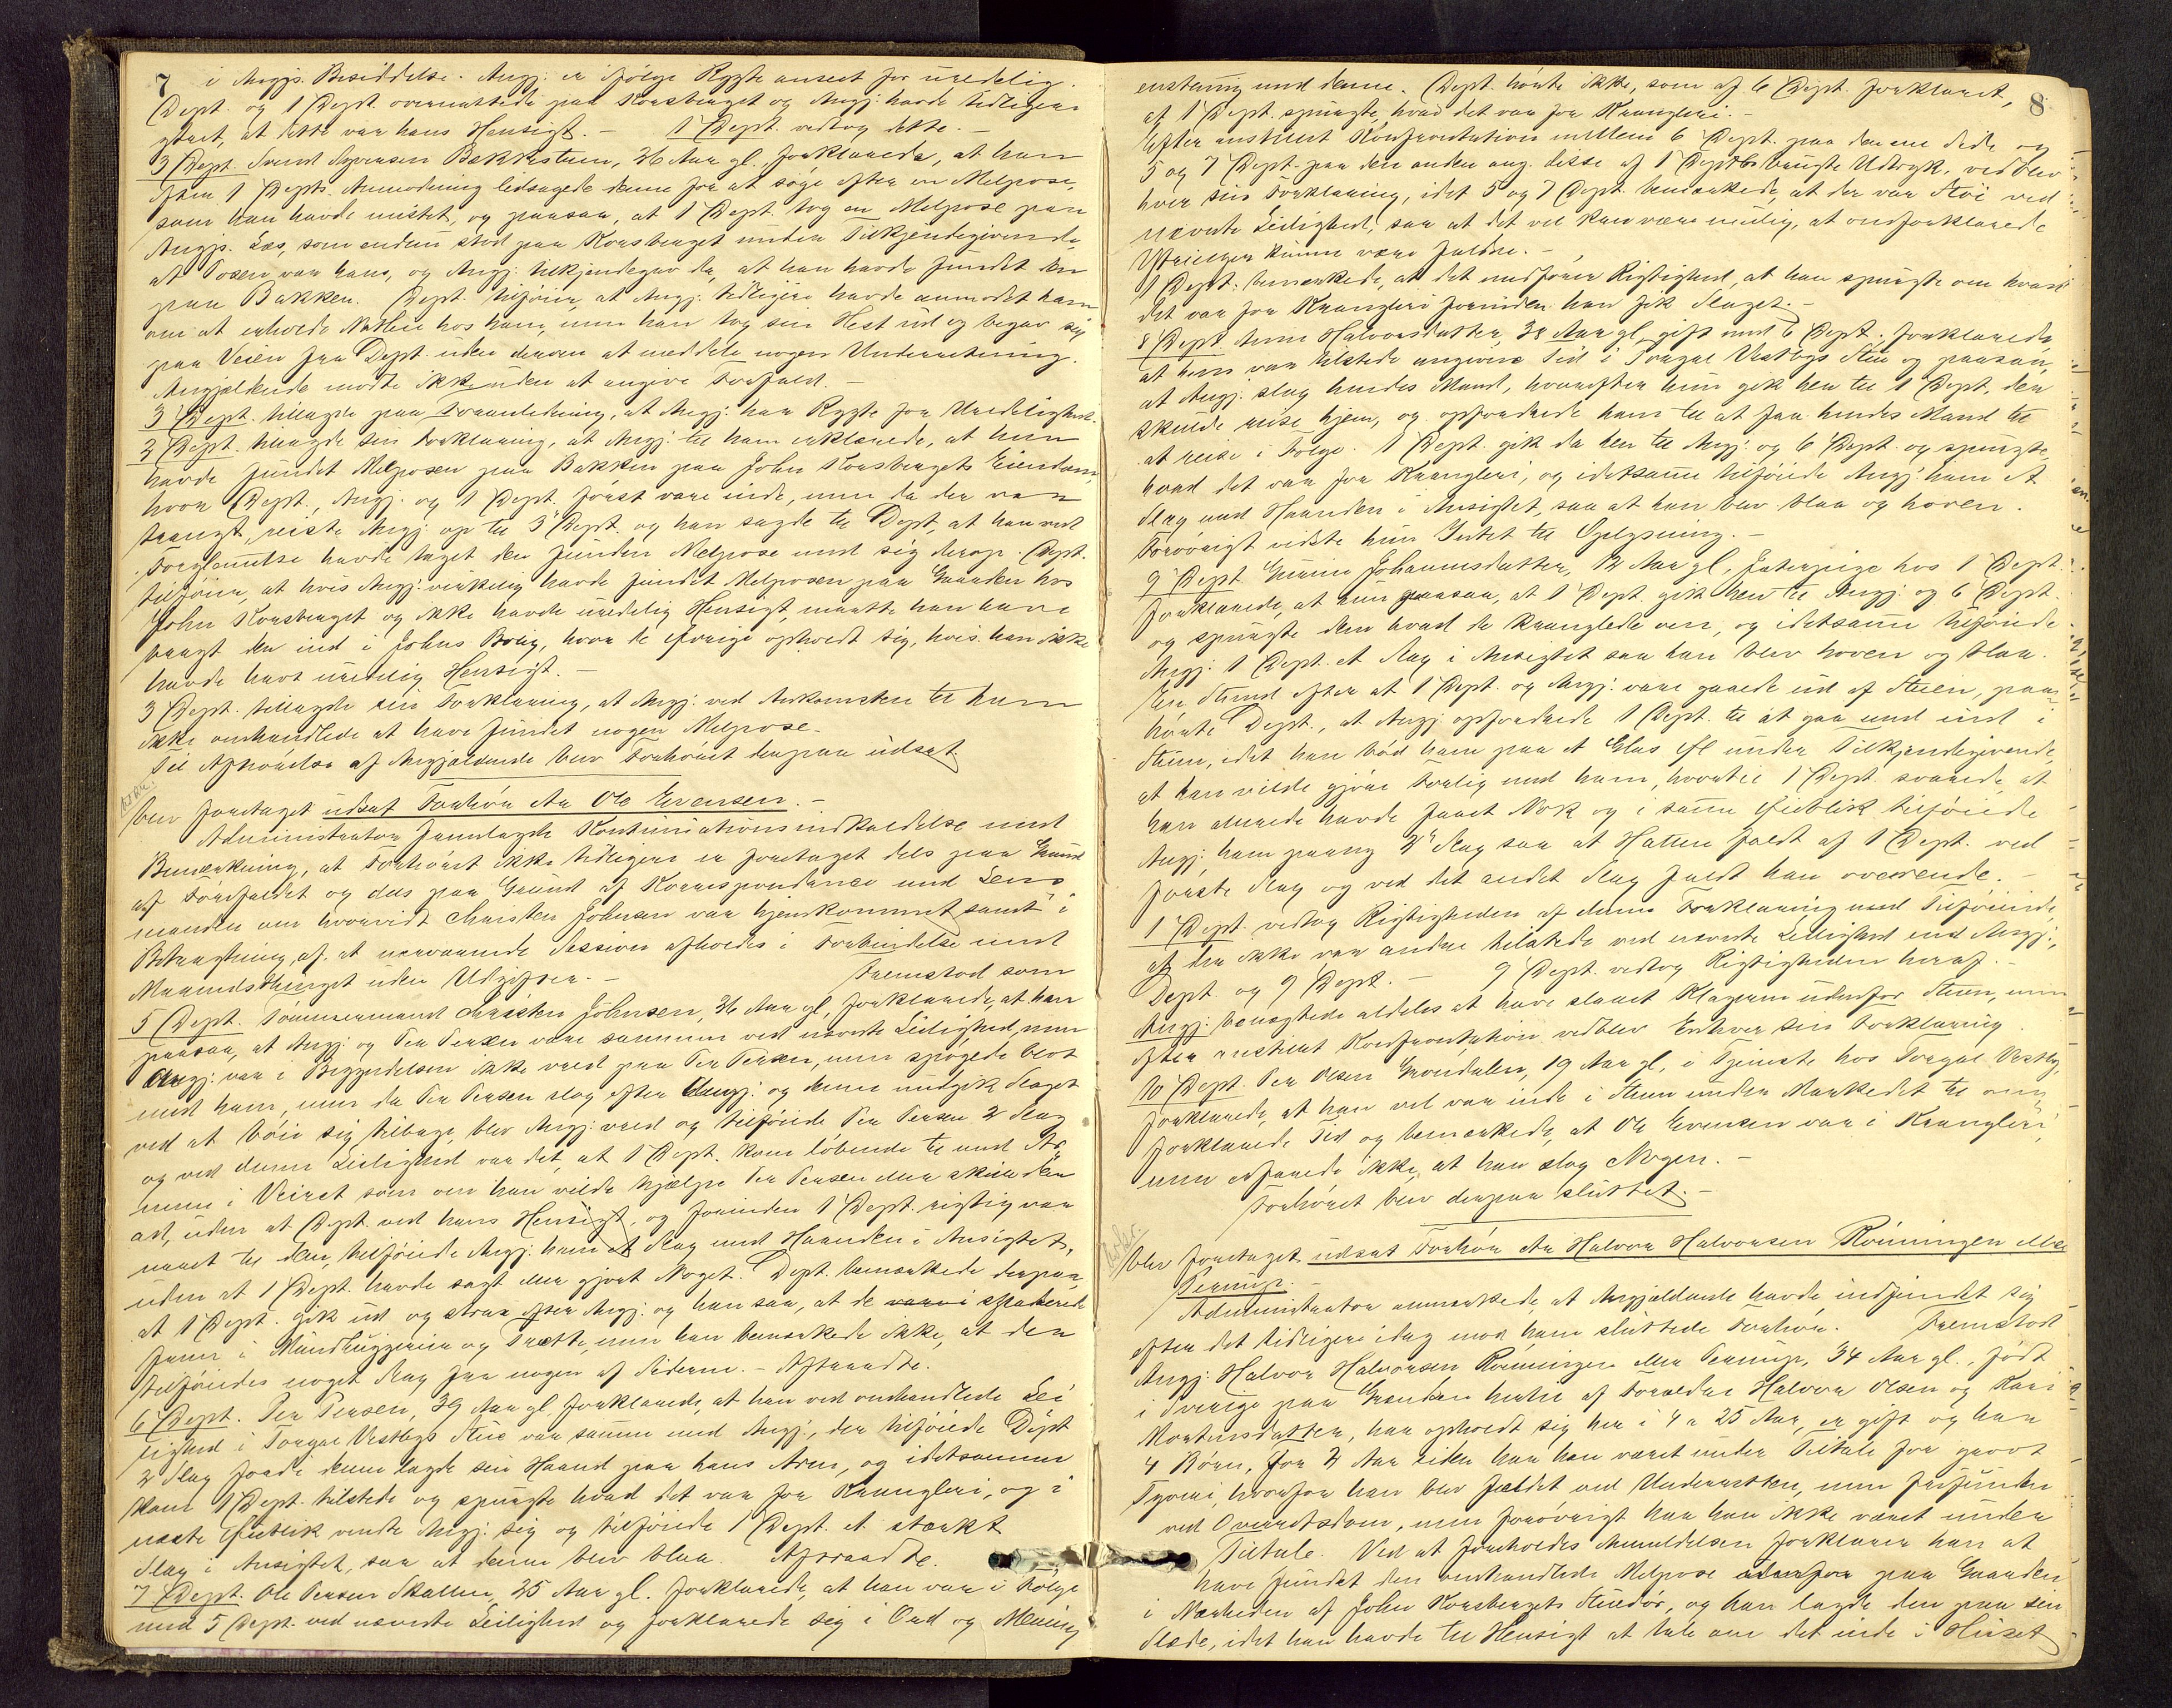 7
i Angjs. Besiddelse. Angj: er ifölge Rygte anseet for uredelig.
Dept. og 1 Dept. overnattede paa Korsberget og Angj: havde tidligere
ytret, at dette var hans Hensigt. – 1 Dept. vedtog dette. –
3 Dept. Svend Syversen Bækkstuen, 36 Aar gl., forklarede, at han
efter 1 Depts. Anmodning ledsagede denne for at söge efter en Melpose,
som han havde mistet, og paasaa, at 1 Dept. tog en Melpose paa
Angjs. Læs, som endnu stod paa Korsberget under Tilkjendegivende,
at Posen var hans, og Angj: tilkjendegav da, at han havde fundet den
paa Bakken. Dept. tilföier, at Angj: tidligere havde anmodet ham
om at erholde Natteli hos ham, men han tog sin Hest ud og begav sig
paa Veien fra Dept. uden denne at meddele nogen Underretning.
Angjældende mödte ikke uden at angive Forfald. –
3 Dept. tillagde paa Foranledning, at Angj: har Rygte for Uredelighed.
2 Dept. tillagde sin Forklaring, at Angj: til ham erklærede, at han
havde fundet Melposen paa Bakken paa John Korsbergets Eiendom,
hvor Dept., Angj: og 1 Dept. först vare inde, men da der var
trangt, reiste Angj: op til 3 Dept. og han sagde til Dept, at han ved
Forglemmelse havde taget den fundne Melpose med sig derop. Dept.
tilföier, at hvis Angj: virkelig havde fundet Melposen paa Gaarden hos
John Korsberget og ikke havde uredelig Hensigt, maatte han have
bragt den ind i Johns Brug, hvor de Övrige opholdt sig, hvis han ikke
havde havt uredelig Hensigt. –
3 Dept. tillagde sin Forklaring, at Angj: ved Ankomsten til ham
ikke omhandlede at have fundet nogen Melpose.
Til Afhörelse af Angjældende blev Forhöret derpaa udsat
blev foretaget udsat Forhör Ctr Ole Evensen. –
Administrator fremlagde Kontinuationsindkaldelse med
Bemærkning, at Forhöret ikke tidligere er foretaget dels paa Grund
af Föreforholdet og dels paa Grund af Korrespondance med Lens-
manden om hvorvidt Christen Johnsen var hjemkommet samt i
Betragtning af at nærværende Session afholdes i Forbindelse med
Maanedsthinget uden Udgifter. – Fremstod som
5 Dept. Tömmermand Christen Johnsen, 36 Aar gl, forklarede, at han
paasaa, at Angj: og Per Persen vare sammen ved nævnte Leilighed, men
Angj: var i Begyndelsen ikke vred paa Per Persen, men spögede blot
med ham, men da Per Persen slog efter Angj: og denne undgik Slaget
ved at böie sig tilbage, blev Angj: vred og tilföiede Per Persen 2 Slag
og ved denne Leilighed var det, at 1 Dept. kom löbende til med Ar-
mene i Veiret som om han vilde hjælpe Per Persen eller skille dem
ad, uden at Dept. ved hans Hensigt, og forinden 1 Dept. rigtig var
naaet til dem, tilföiede Angj: ham et Slag med Haanden i Ansigtet,
uden at 1 Dept. havde sagt eller gjort Noget. Dept. bemærkede derpaa,
at 1 Dept. gik ud og strax efter Angj: og han saa, at de i spadserede
frem i Mundhuggeri og Trætte, men han bemærkede ikke, at der
tilföiedes noget Slag fra nogen af Siderne. – Aftraadte.
6 Dept. Per Persen, 39 Aar gl forklarede, at han ved omhandlede Lei-
lighed i Torgal Vestbys Stue var samme med Angj:, der tilföiede Dept
2 Slag fordi denne lagde sin Haand paa hans Arm, og idetsamme
kom 1 Dept. tilstede og spurgte hvad det var for Krangleri, og i
næste Öieblik vendte Angj: sig og tilföiede 1 Dept. et stærkt
Slag i Ansigtet, saa at denne blev blaa. Aftraadte.
7 Dept. Ole Persen Skallen, 25 Aar gl. forklarede, at han var i Fölge
med 5 Dept. ved nævnte Leilighed og forklarede sig i Ord og Mening
8
enstemmig med denne. Dept. hörte ikke, som af 6 Dept. forklaret,
at 1 Dept. spurgte, hvad det var for Krangleri. –
Efter anstillet Konfrontation mellem 6 Dept. paa den ene Side og
5 og 7 Dept. paa den anden ang. disse af 1 Dept. brugte Udtryk, vedblev
hver sin Forklaring, idet 5 og 7 Dept. bemærkede, at der var Stöi ved
nævnte Leilighed, saa at det vel kan være mulig, at omforklarede
Ytringer kunne være faldne. –
1 Dept. bemærkede, at det medförer Rigtighed, at han spurgte om hvad
det var for Krangleri forinden han fik Slaget. –
8 Dept. Halvorsdatter, 38 Aar gl, gift med 6 Dept., forklarede,
at hun var tilstede angivne Tid i Torgal Vestbys Stue og paasaa,
at Angj: slog hendes Mand, hvorefter hun gik hen til 1 Dept, der
skulde reise hjem, og opfordrede ham til at faa hendes Mand til
at reise i Fölge. 1 Dept. gik da hen til Angj: og 6 Dept. og spurgte
hvad det var for Krangleri, og idetsamme tilföiede Angj: ham et
Slag med Haanden i Ansigtet, saa at han blev blaa og hoven.
Forövrigt vidste hun Intet til Oplysning. –
9 Dept. Gunne Johannesdatter, 12 Aar gl, Gjeterpige hos 1 Dept.
forklarede, at hun paasaa, at 1 Dept. gik hen til Angj: og 6 Dept.
og spurgte dem hvad de kranglede om, og idetsamme tilföiede
Angj: 1 Dept. et Slag i Ansigtet saa han blev hoven og blaa.
En Stund efter at 1 Dept. og Angj: vare gaaede ud af Stuen, paa-
hörte Dept., at Angj: opfordrede 1 Dept. til at gaa med ind i
Stuen, idet han böd ham paa et Glas Öl under Tilkjendegivende,
at han vilde gjöre Forlig med ham, hvortil 1 Dept. svarede, at
han allerede havde faaet Nok og i samme Öieblik tilföiede
Angj: ham paany 2 Slag saa at Hatten faldt af 1 Dept. ved
förste Slag og ved det andet Slag faldt han overende. –
1 Dept. vedtog Rigtigheden af denne Forklaring med Tilföiende,
at der ikke var andre tilstede ved nævnte Leilighed end Angj:,
Dept. og 9 Dept. – 9 Dept. vedtog Rigtigheden heraf. –
Angj: benægtede aldeles at have slaaet Klageren udenfor Stuen, men
efter anstillet Konfrontation vedblev Enhver sin Forklaring.
10 Dept. Per Olsen Grøndalen, 19 Aar gl, i Tjeneste hos Torgal Vestby,
forklarede, at han vel var inde i Stuen under Markedet til om-
forklarede Tid og bemærkede, at Ole Evensen var i Krangleri,
men erfarede ikke, at han slog Nogen. –
Forhöret blev derpaa sluttet. –
blev foretaget udsat Forhör Ctr Halvor Halvorsen Rönningen eller
Permyr. –
Administrator anmærkede, at Angjældende havde indfundet sig
efter det tidligere idag mod ham sluttede Forhör. Fremstod
Angj: Halvor Halvorsen Rönningen eller Permyr, 34 Aar gl., födt
i Sverige paa af Forældre Halvor Olsen og Kari
Mortensdatter, har opholdt sig her i 4 a 25 Aar, er gift og har
4 Börn, for 2 Aar siden har han været under Tiltale for grovt
Tyveri, hvorfor han blev fældet ved Underretten, men frifunden
ved Overretsdom, men forövrigt har han ikke været under
Tiltale. Ved at foreholdes Anmeldelsen forklarer han at
have fundet den omhandlede Melpose paa Gaarden
i Nærheden af John Korsbergets Stuedör, og han lagde den paa sin
Slæde, idet han havde til Hensigt at tale om det inde i Huset